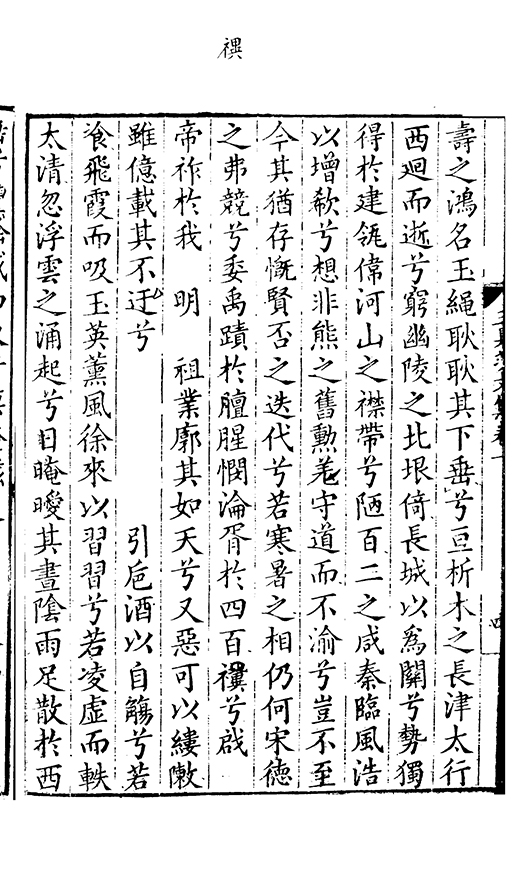 禩
壽之鴻名玉繩耿耿其下垂兮亘析木之長津太行
西廻而逝兮窮幽陵之北垠倚長城以為關兮勢獨
得於建瓴偉河山之襟帶兮陋百二之咸秦臨風浩
以增欷兮想非熊之舊勳羌守道而不渝兮豈不至
今其猶存慨賢否之迭代兮若寒暑之相仍何宋德
之弗競兮委禹蹟於膻腥憫淪胥於四百禩兮啟
帝祚於我 明 祖業廓其如天兮又惡可以縷陳
雖億載其不迂兮 引巵酒以自觴兮若
飡飛霞而吸玉英薰風徐來以習習兮若凌虛而軼
太清忽浮雲之涌起兮日晻曖其晝陰雨足散於西